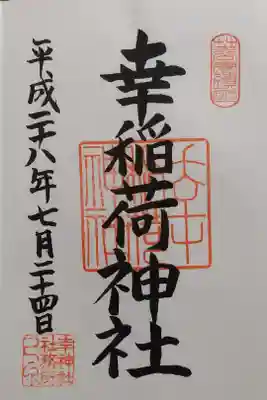 幸稲荷神社
平成二十八年七月二十四日